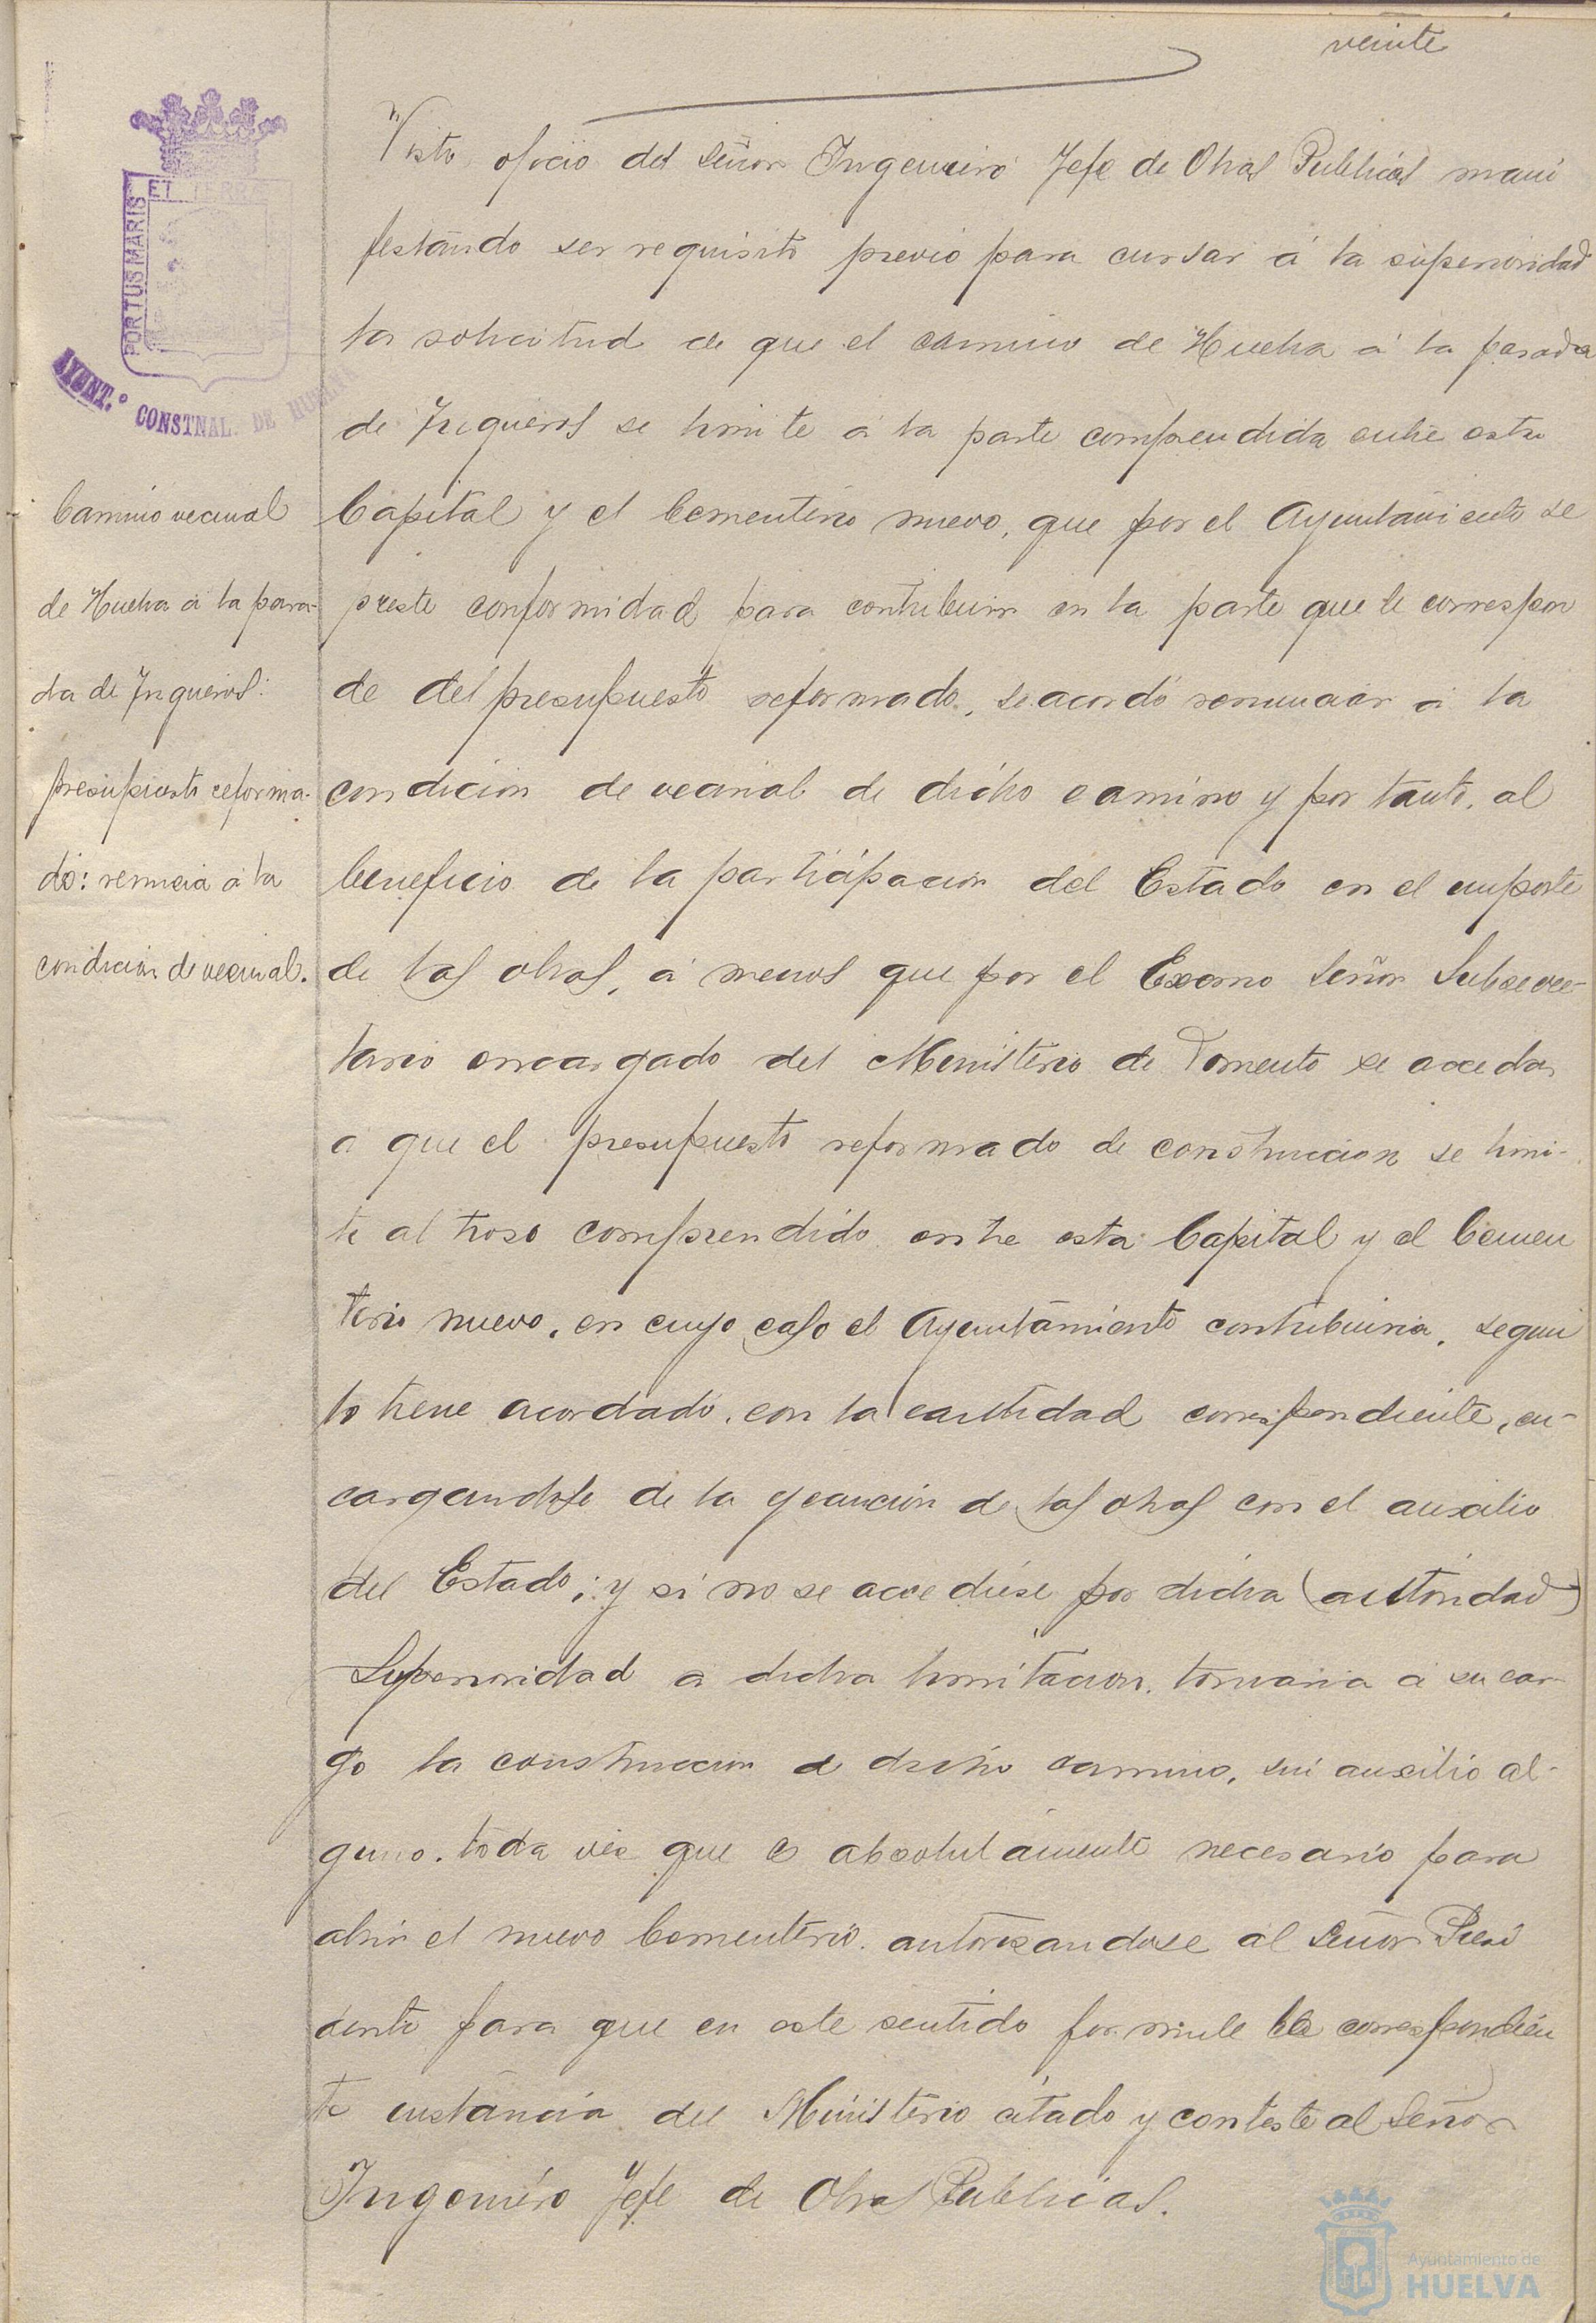 veinte
Visto oficio del Señor Ingeniero Jefe de Obras Publicas mani
festando ser requisito previo para cursar á la superioridad
la solicitud de que el camino de Huelva á la parada
de Trigueros se limite á la parte comprendida entre esta
Capital y el Cementerio nuevo, que por el Ayuntamiento se
preste conformidad para contribuir en la parte que le correspon
de del presupuesto reformado, se acordó renunciar á la
condicion de vecinal de dicho camino y por tanto, al
beneficio de la participacion del Estado en el importe
de las obras, á menos que por el Excmo Señor Subsecre-
tario encargado del Ministerio de Fomento se acceda
a que el presupuesto reformado de construccion se limi-
te al troso comprendido entre esta Capital y el Cemen
terio nuevo, en cuyo caso el Ayuntamiento contribuiria, segun
lo tiene acordado, con la cantidad correspondiente, en-
cargandose de la ejecucion de las obras con el auxilio
del Estado; y si no se accediese por dicha (autoridad)
Superioridad a dicha limitacion, tomaria á su car
go la construccion de dicho camino, sin auxilio al-
guno, toda vez que es absolutamente necesario para
abrir el nuevo Cementerio, autorizandose al Señor Presi
dente para que en este sentido formule la correspondien
te instancia del Ministerio citado y conteste al Señor
Ingeniero Jefe de Obras Publicas.
Camino vecinal
de Huelva á la para-
da de Trigueros:
presupuesto reforma-
do: renuncia á la
condicion de vecinal.
PORTUS MARIS
ET TERRÆ
AYUNT.º CONSTNAL. DE HUELVA
Ayuntamiento de
HUELVA